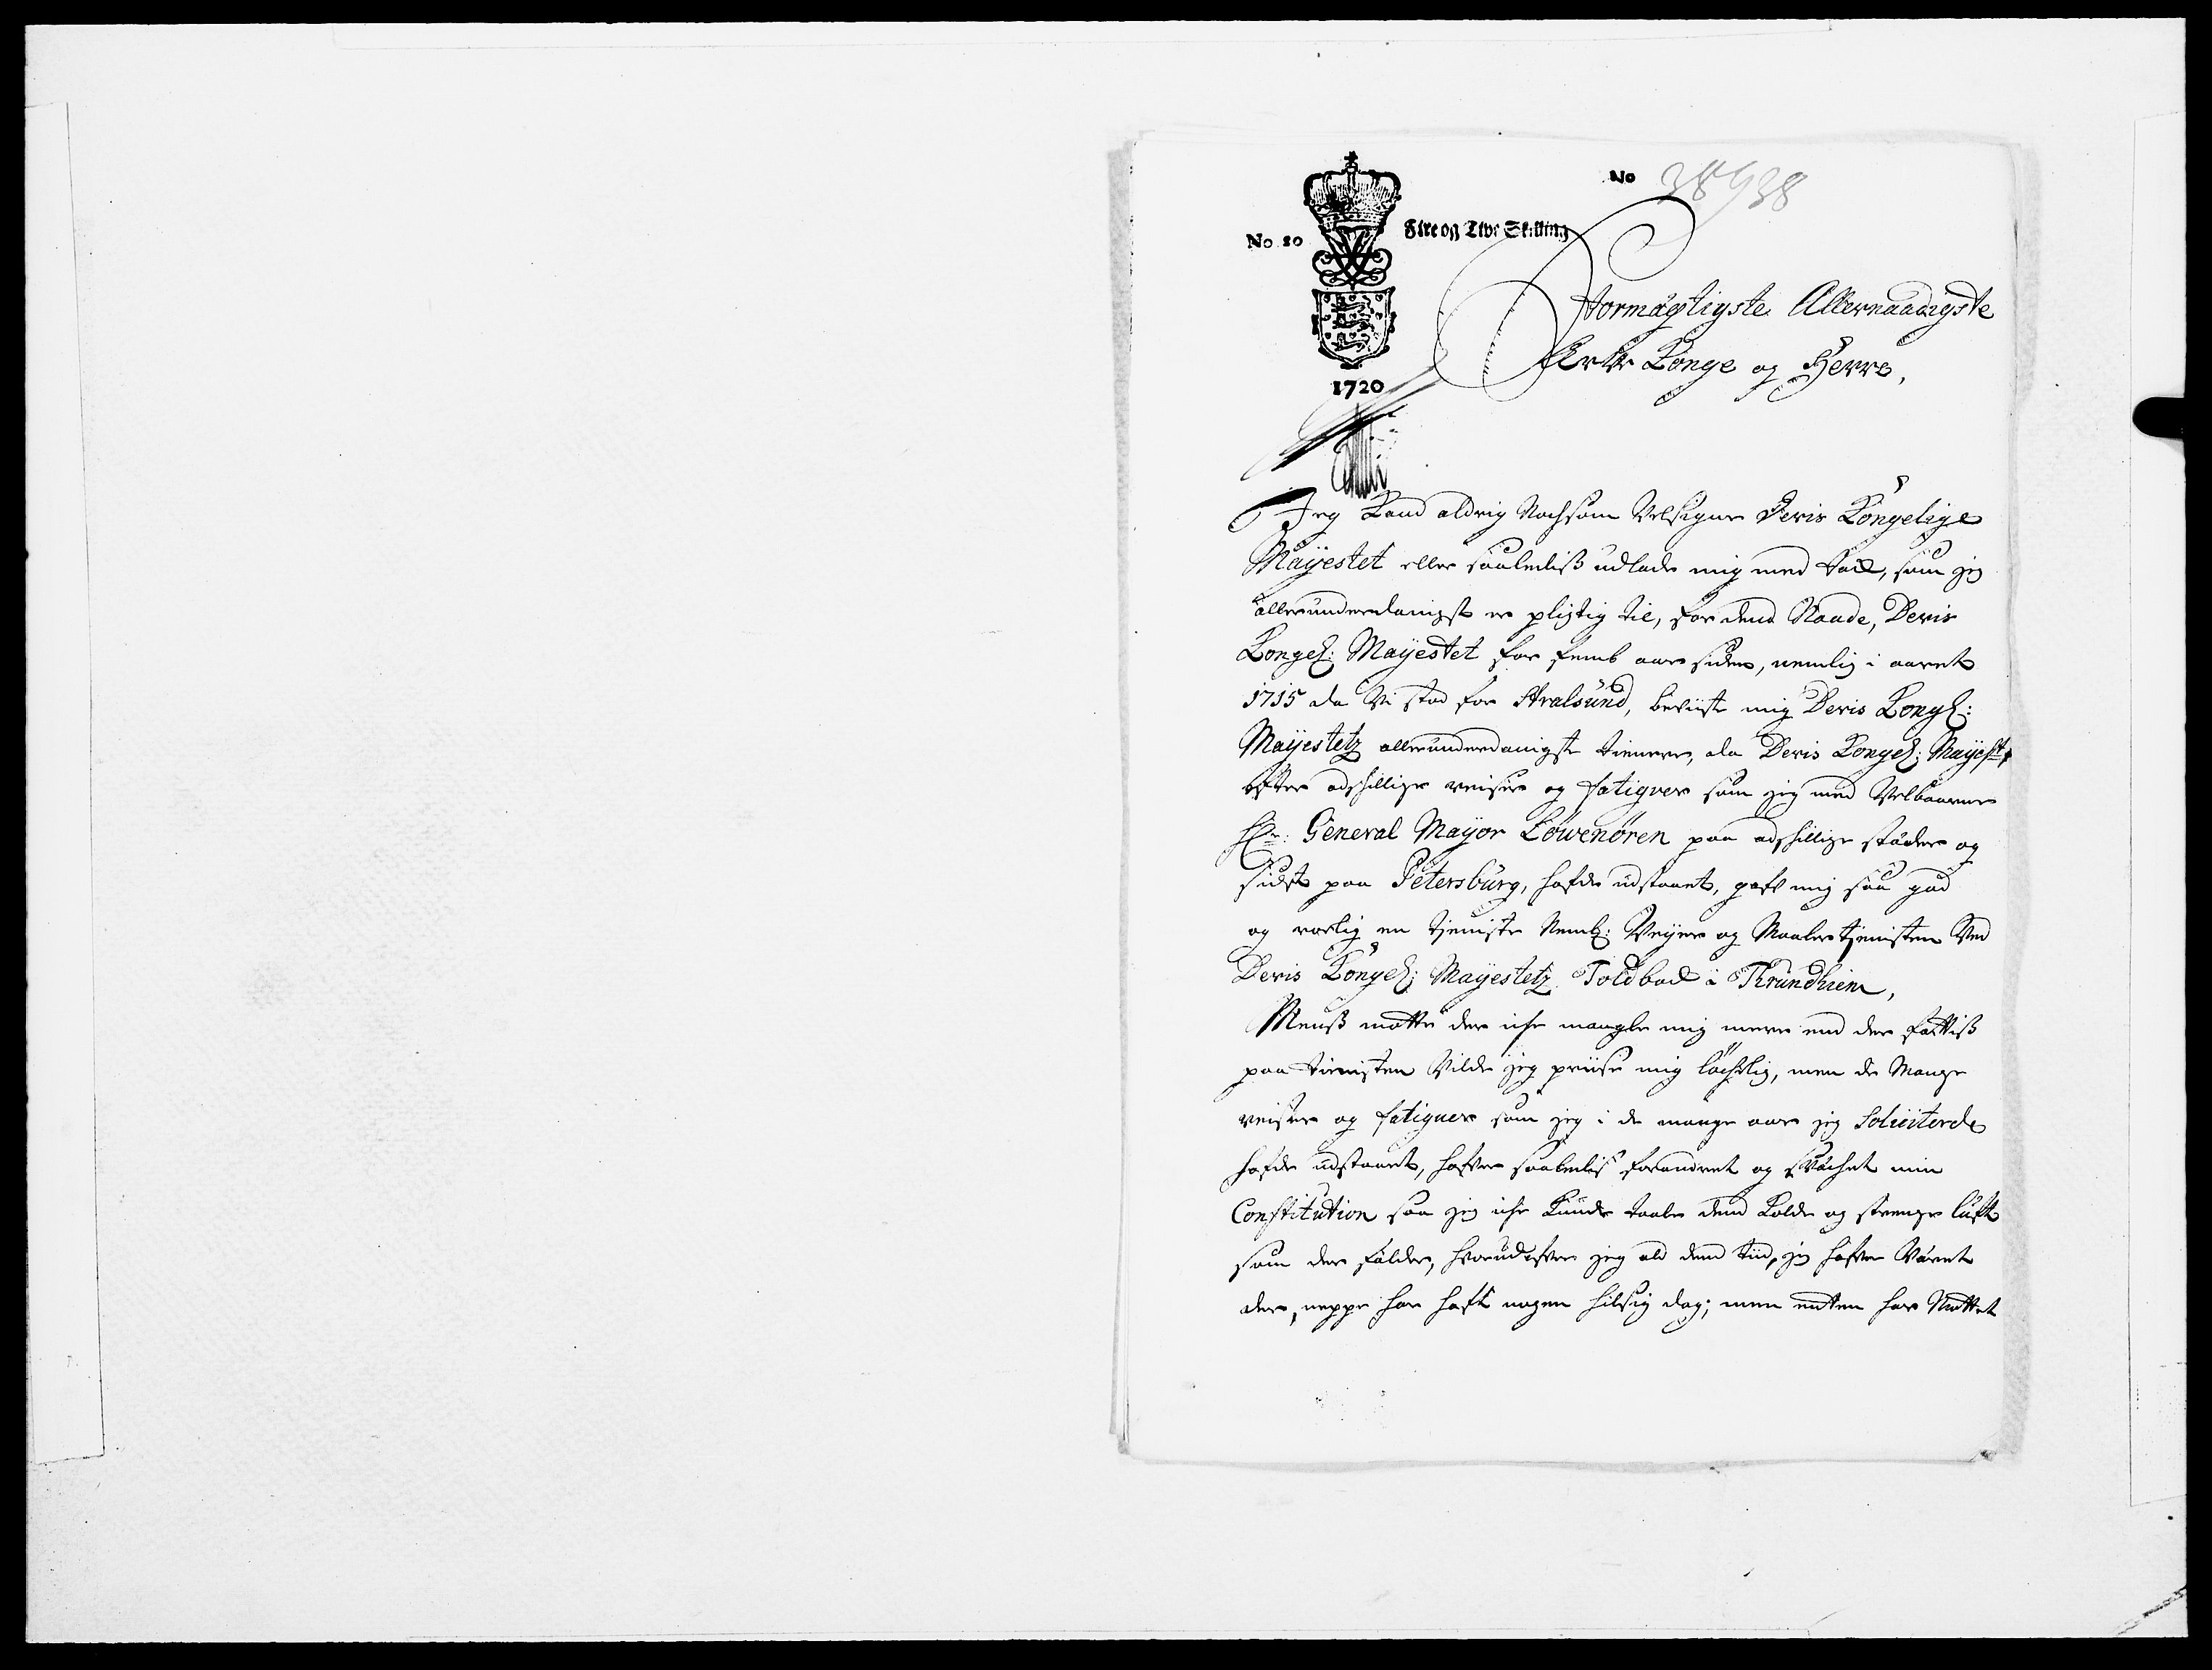 No 38938
No 10 Fire og Tive Skilling
1720
Stormägtigste Allernaadigste
Arfve Konge og Herre,
Jeg Kand aldrig Nochsom Velsigne Deris Kongelige
Mayestet eller saalediß udlade mig med tack, som jeg
allerunderdanigst er pligtig til, for dend Naade, Deris
Kongel: Mayestet for femb aar siden, nemlig i aaret
1715 da Vi stod for Stralsund, beviiste mig Deris Kongl:
Mayestetz allerunderdanigste tienere, da Deris Kongel: Mayest:
efter adskillige reiser og fatiguer som jeg med Velbaarne
Hr: General Mayor Löwenören paa adskillige städer og
sidst paa Petersburg, hafde udstaaet, gaf mig saa god
og roelig en tjeniste Neml: Veyer og Maaler tjenisten Ved
Deris Kongel: Mayestetz Toldbod i Thrundhiem,
Menß motte der iche mangle mig mere end der fattiß
paa tienisten Vilde jeg priise mig löchelig, men de Mange
reiser og fatiguer som jeg i de mange aar jeg Soliciterde
hafde udstaaet, hafver saalediß forandret og svächet min
Constitution saa jeg iche Kunde taale dend Kolde og strenge luft
som der falder, hvorudofver jeg ald dend tiid, jeg hafver Väret
der, neppe har haft nogen hilsig dag; men endten har Mottet